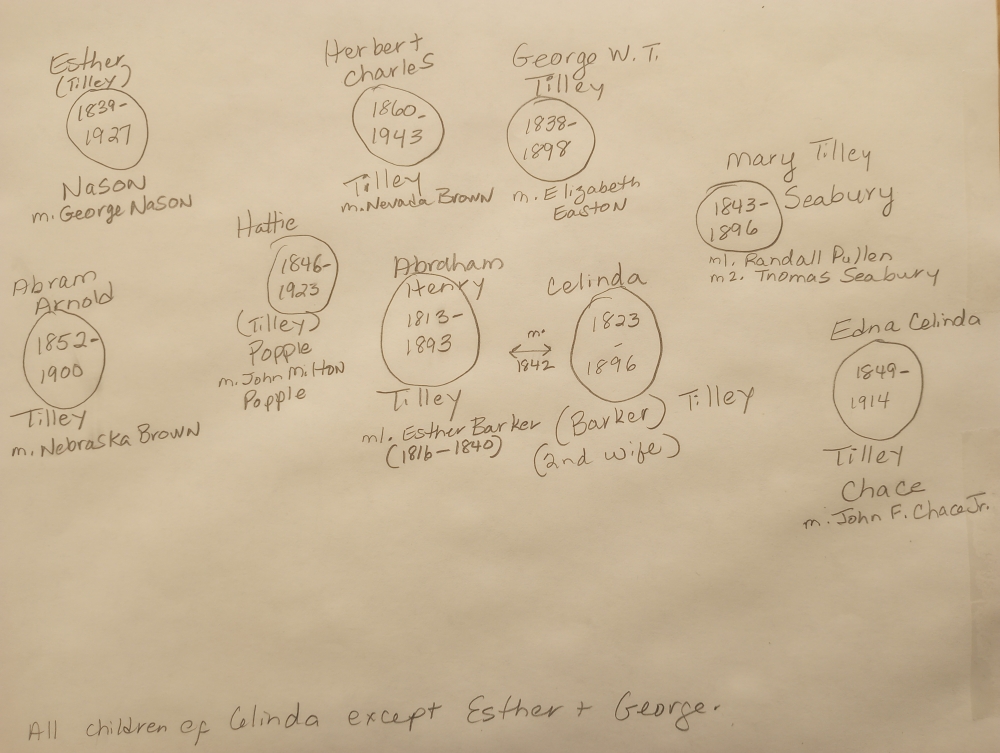 Esther
(Tilley)
1839-
1927
Nason
m. George Nason
Herbert
Charles
1860-
1943
Tilley
m. Nevada Brown
George W. T.
Tilley
1838-
1898
m. Elizabeth
Easton
Mary Tilley
Seabury
1843-
1896
m1. Randall Pullen
m2. Thomas Seabury
Abram
Arnold
1852-
1900
Tilley
m. Nebraska Brown
Hattie
1846-
1923
(Tilley)
Popple
m. John Milton
Popple
Abraham
Henry
1813-
1893
Tilley
m1. Esther Barker
(1816-1840)
m.
1842
Celinda
1823
-
1896
(Barker) Tilley
(2nd wife)
Edna Celinda
1849-
1914
Tilley
Chace
m. John F. Chace Jr.
All children of Celinda except Esther + George.